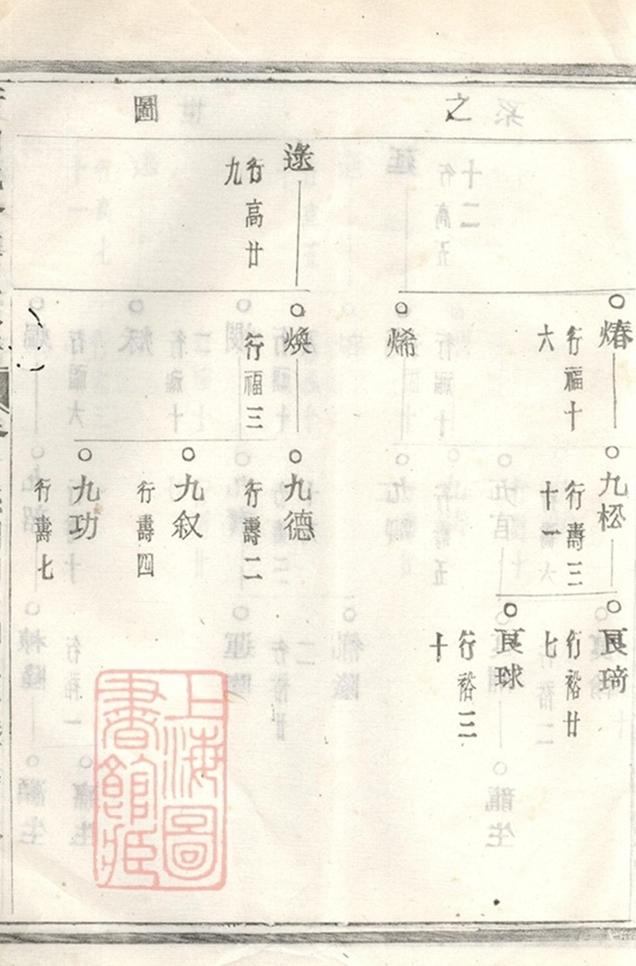 之
圖
逵
行高廿
九
行福十
六
烯
煥
行福三
九松
行壽三
十一
九德
行壽二
九叙
行壽四
九功
行壽七
良琦
行裕廿
七
良球
行裕三
十
上海圖
書館藏